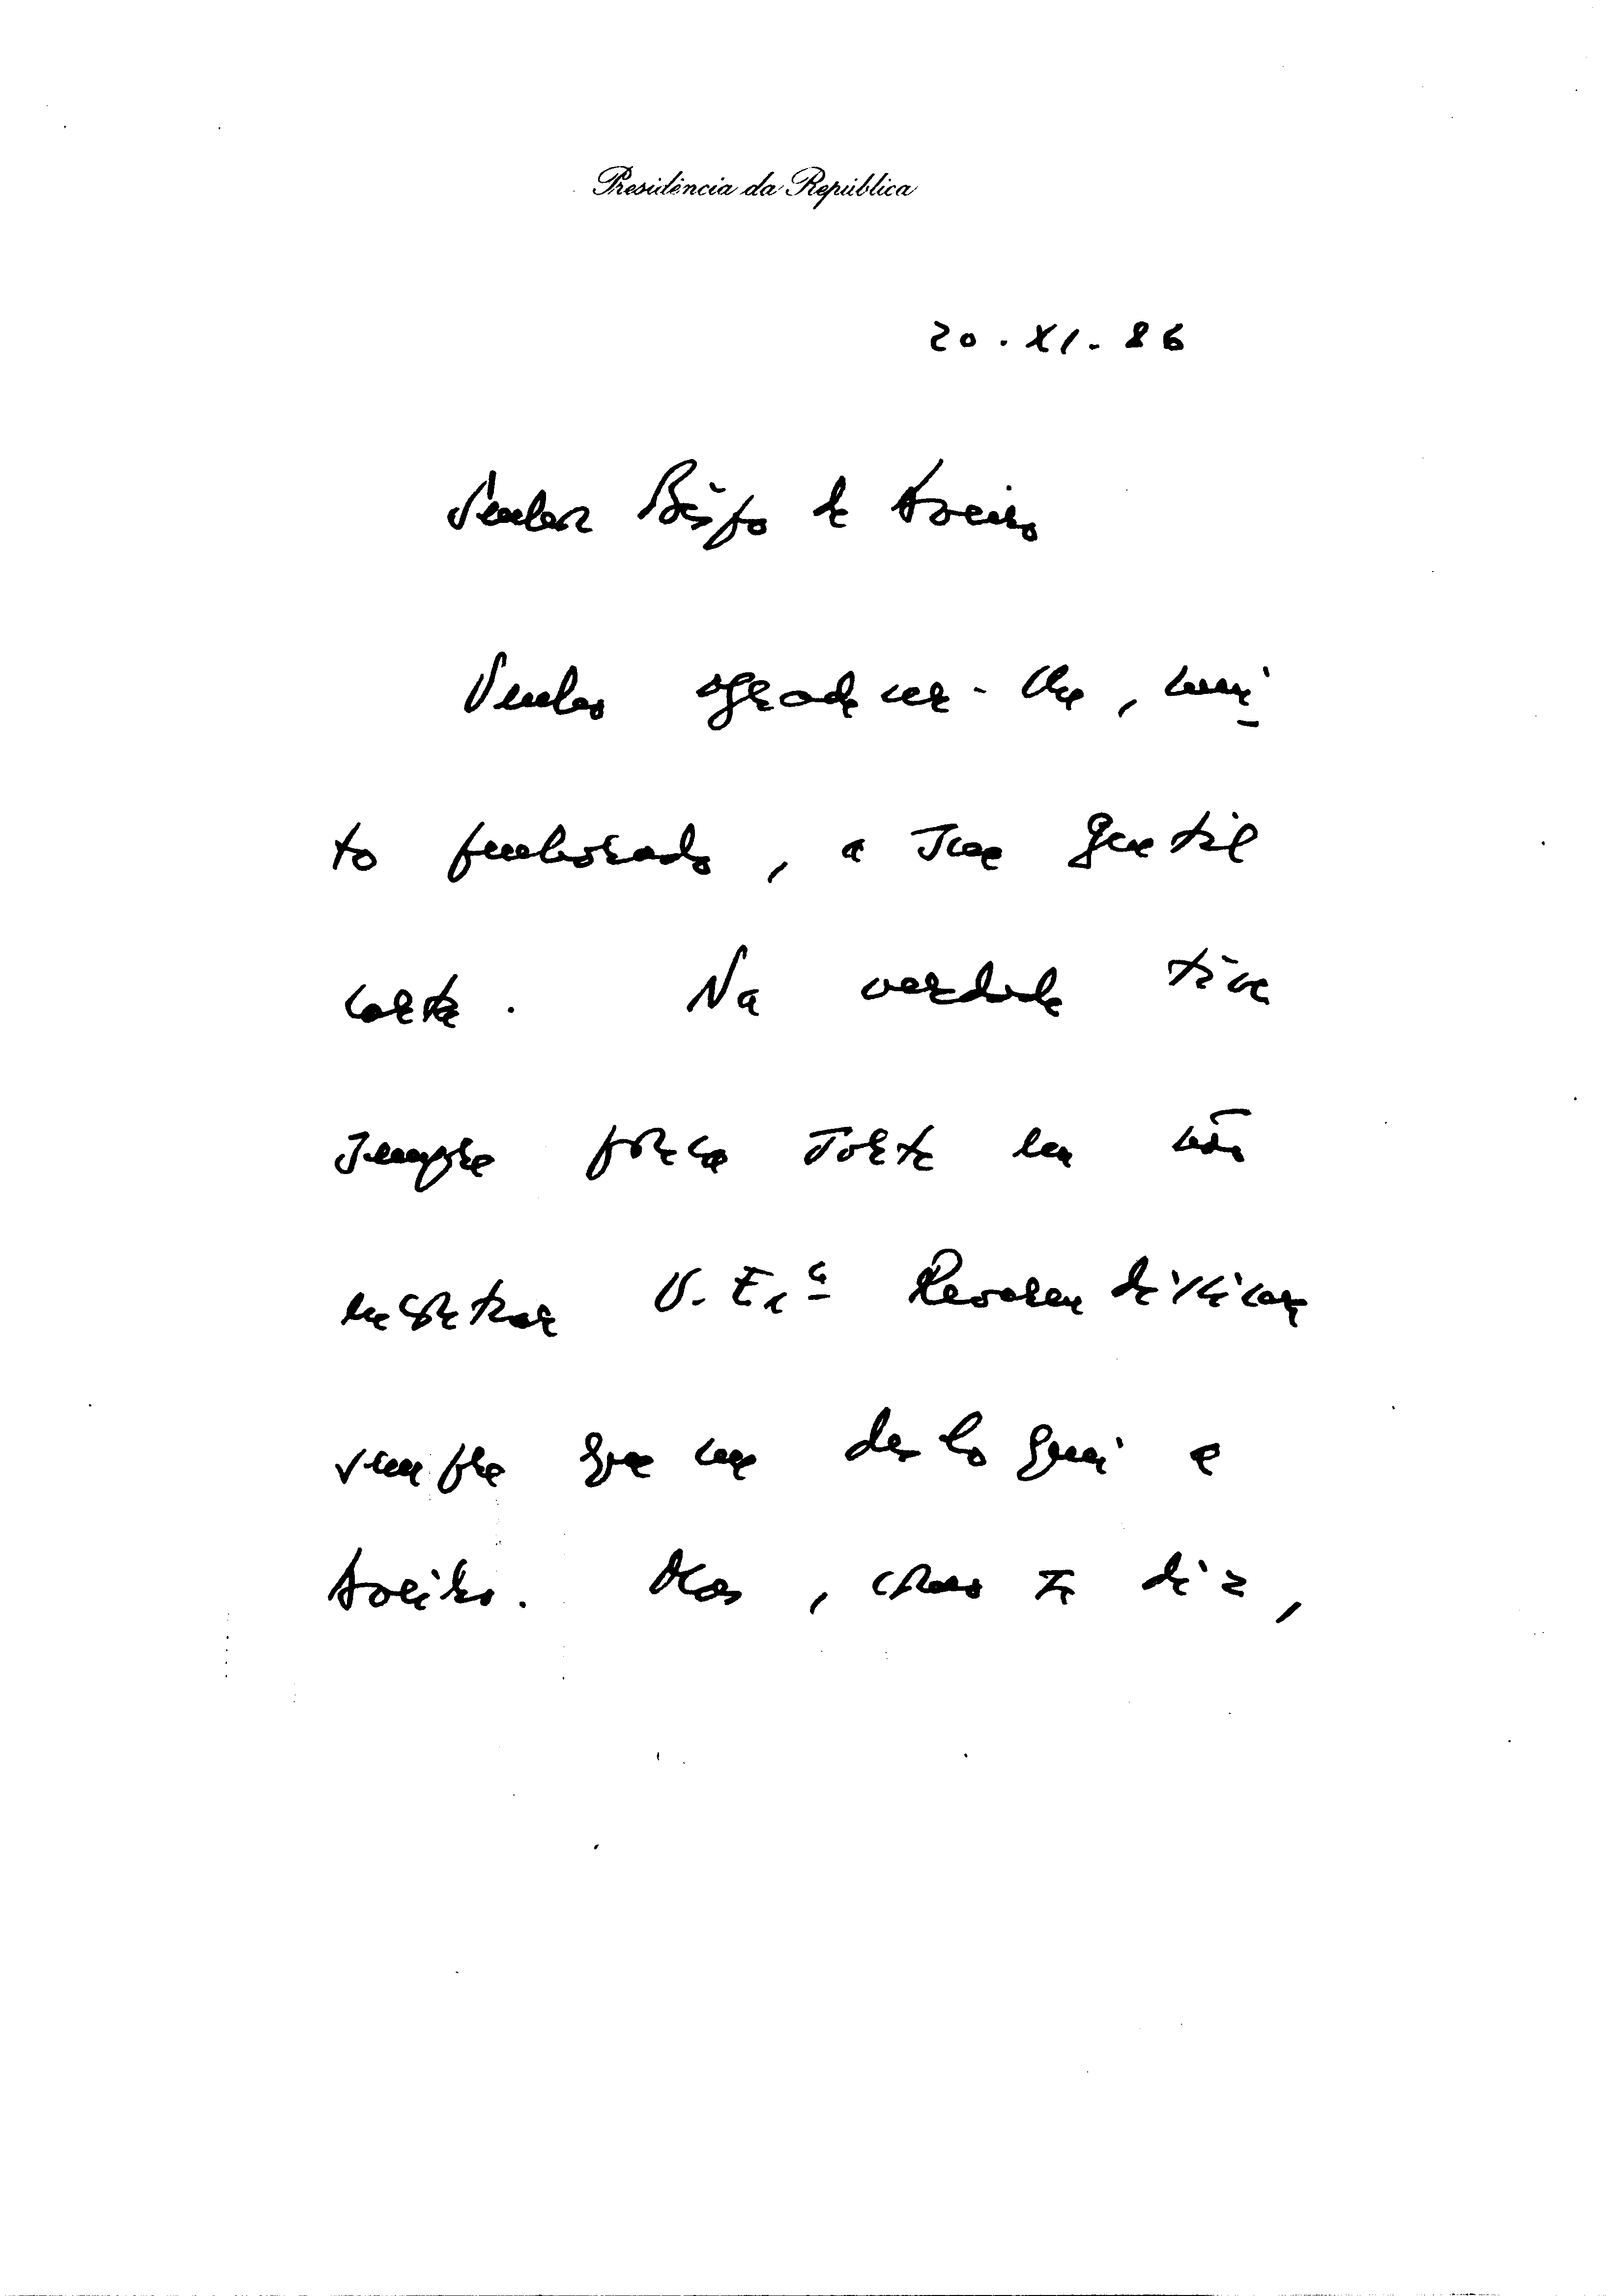 Presidência da República
20.XI.86
Senhor Bispo de Aveiro
Venho agradecer-lhe, mui
to penhorado, a sua gentil
carta. Na verdade tive
sempre pouca sorte em não
encontrar V. Exª Reverendíssima
sempre que me desloquei a
Aveiro. Mas, como se diz,